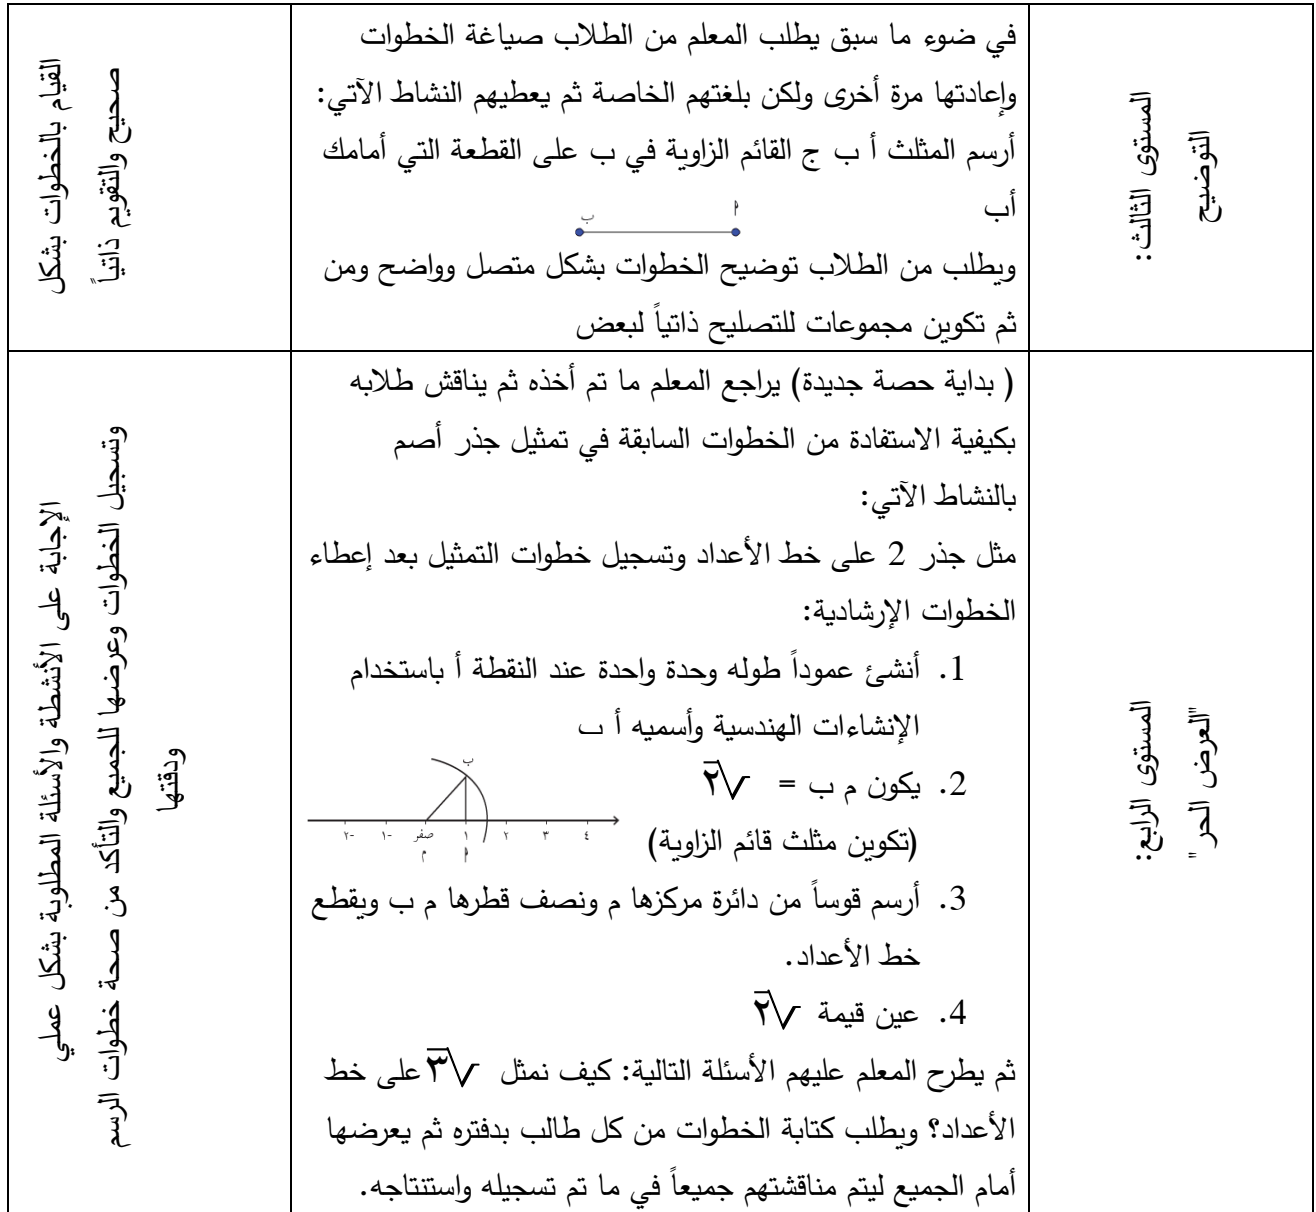 المستوى الثالث:
التوضيح
في ضوء ما سبق يطلب المعلم من الطلاب صياغة الخطوات
وإعادتها مرة أخرى ولكن بلغتهم الخاصة ثم يعطيهم النشاط الآتي:
أرسم المثلث أ ب ج القائم الزاوية في ب على القطعة التي أمامك
أب
أ ب
ويطلب من الطلاب توضيح الخطوات بشكل متصل وواضح ومن
ثم تكوين مجموعات للتصليح ذاتياً لبعض
القيام بالخطوات بشكل
صحيح والتقويم ذاتياً
المستوى الرابع:
"العرض الحر"
( بداية حصة جديدة) يراجع المعلم ما تم أخذه ثم يناقش طلابه
بكيفية الاستفادة من الخطوات السابقة في تمثيل جذر أصم
بالنشاط الآتي:
مثل جذر 2 على خط الأعداد وتسجيل خطوات التمثيل بعد إعطاء
الخطوات الإرشادية:
1. أنشئ عموداً طوله وحدة واحدة عند النقطة أ باستخدام
الإنشاءات الهندسية وأسميه أ ب
2. يكون م ب = √٢
(تكوين مثلث قائم الزاوية)
ب
٢- ١- صفر ١ ٢ ٣ ٤
م أ
3. أرسم قوساً من دائرة مركزها م ونصف قطرها م ب ويقطع
خط الأعداد.
4. عين قيمة √٢
ثم يطرح المعلم عليهم الأسئلة التالية: كيف نمثل √٣ على خط
الأعداد؟ ويطلب كتابة الخطوات من كل طالب بدفتره ثم يعرضها
أمام الجميع ليتم مناقشتهم جميعاً في ما تم تسجيله واستنتاجه.
الإجابة على الأنشطة والأسئلة المطلوبة بشكل عملي
وتسجيل الخطوات وعرضها للجميع والتأكد من صحة خطوات الرسم
ودقتها